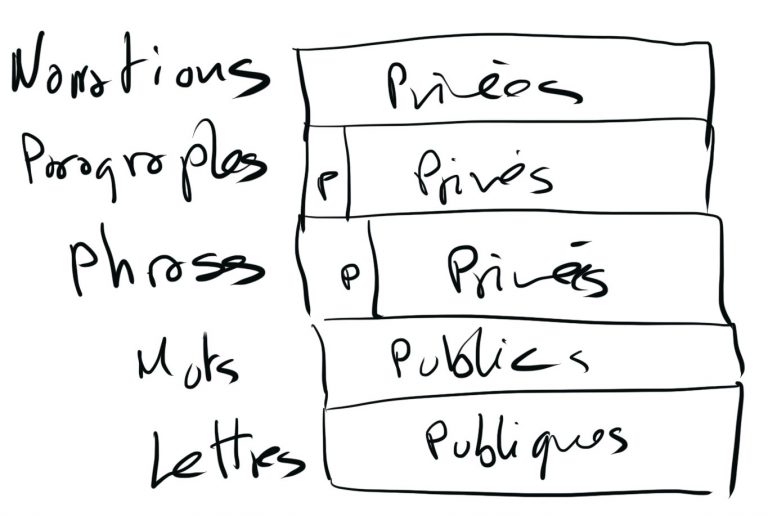 Narrations Privées
Paragraphes P Privés
Phrases P Privés
Mots Publics
Lettres Publiques